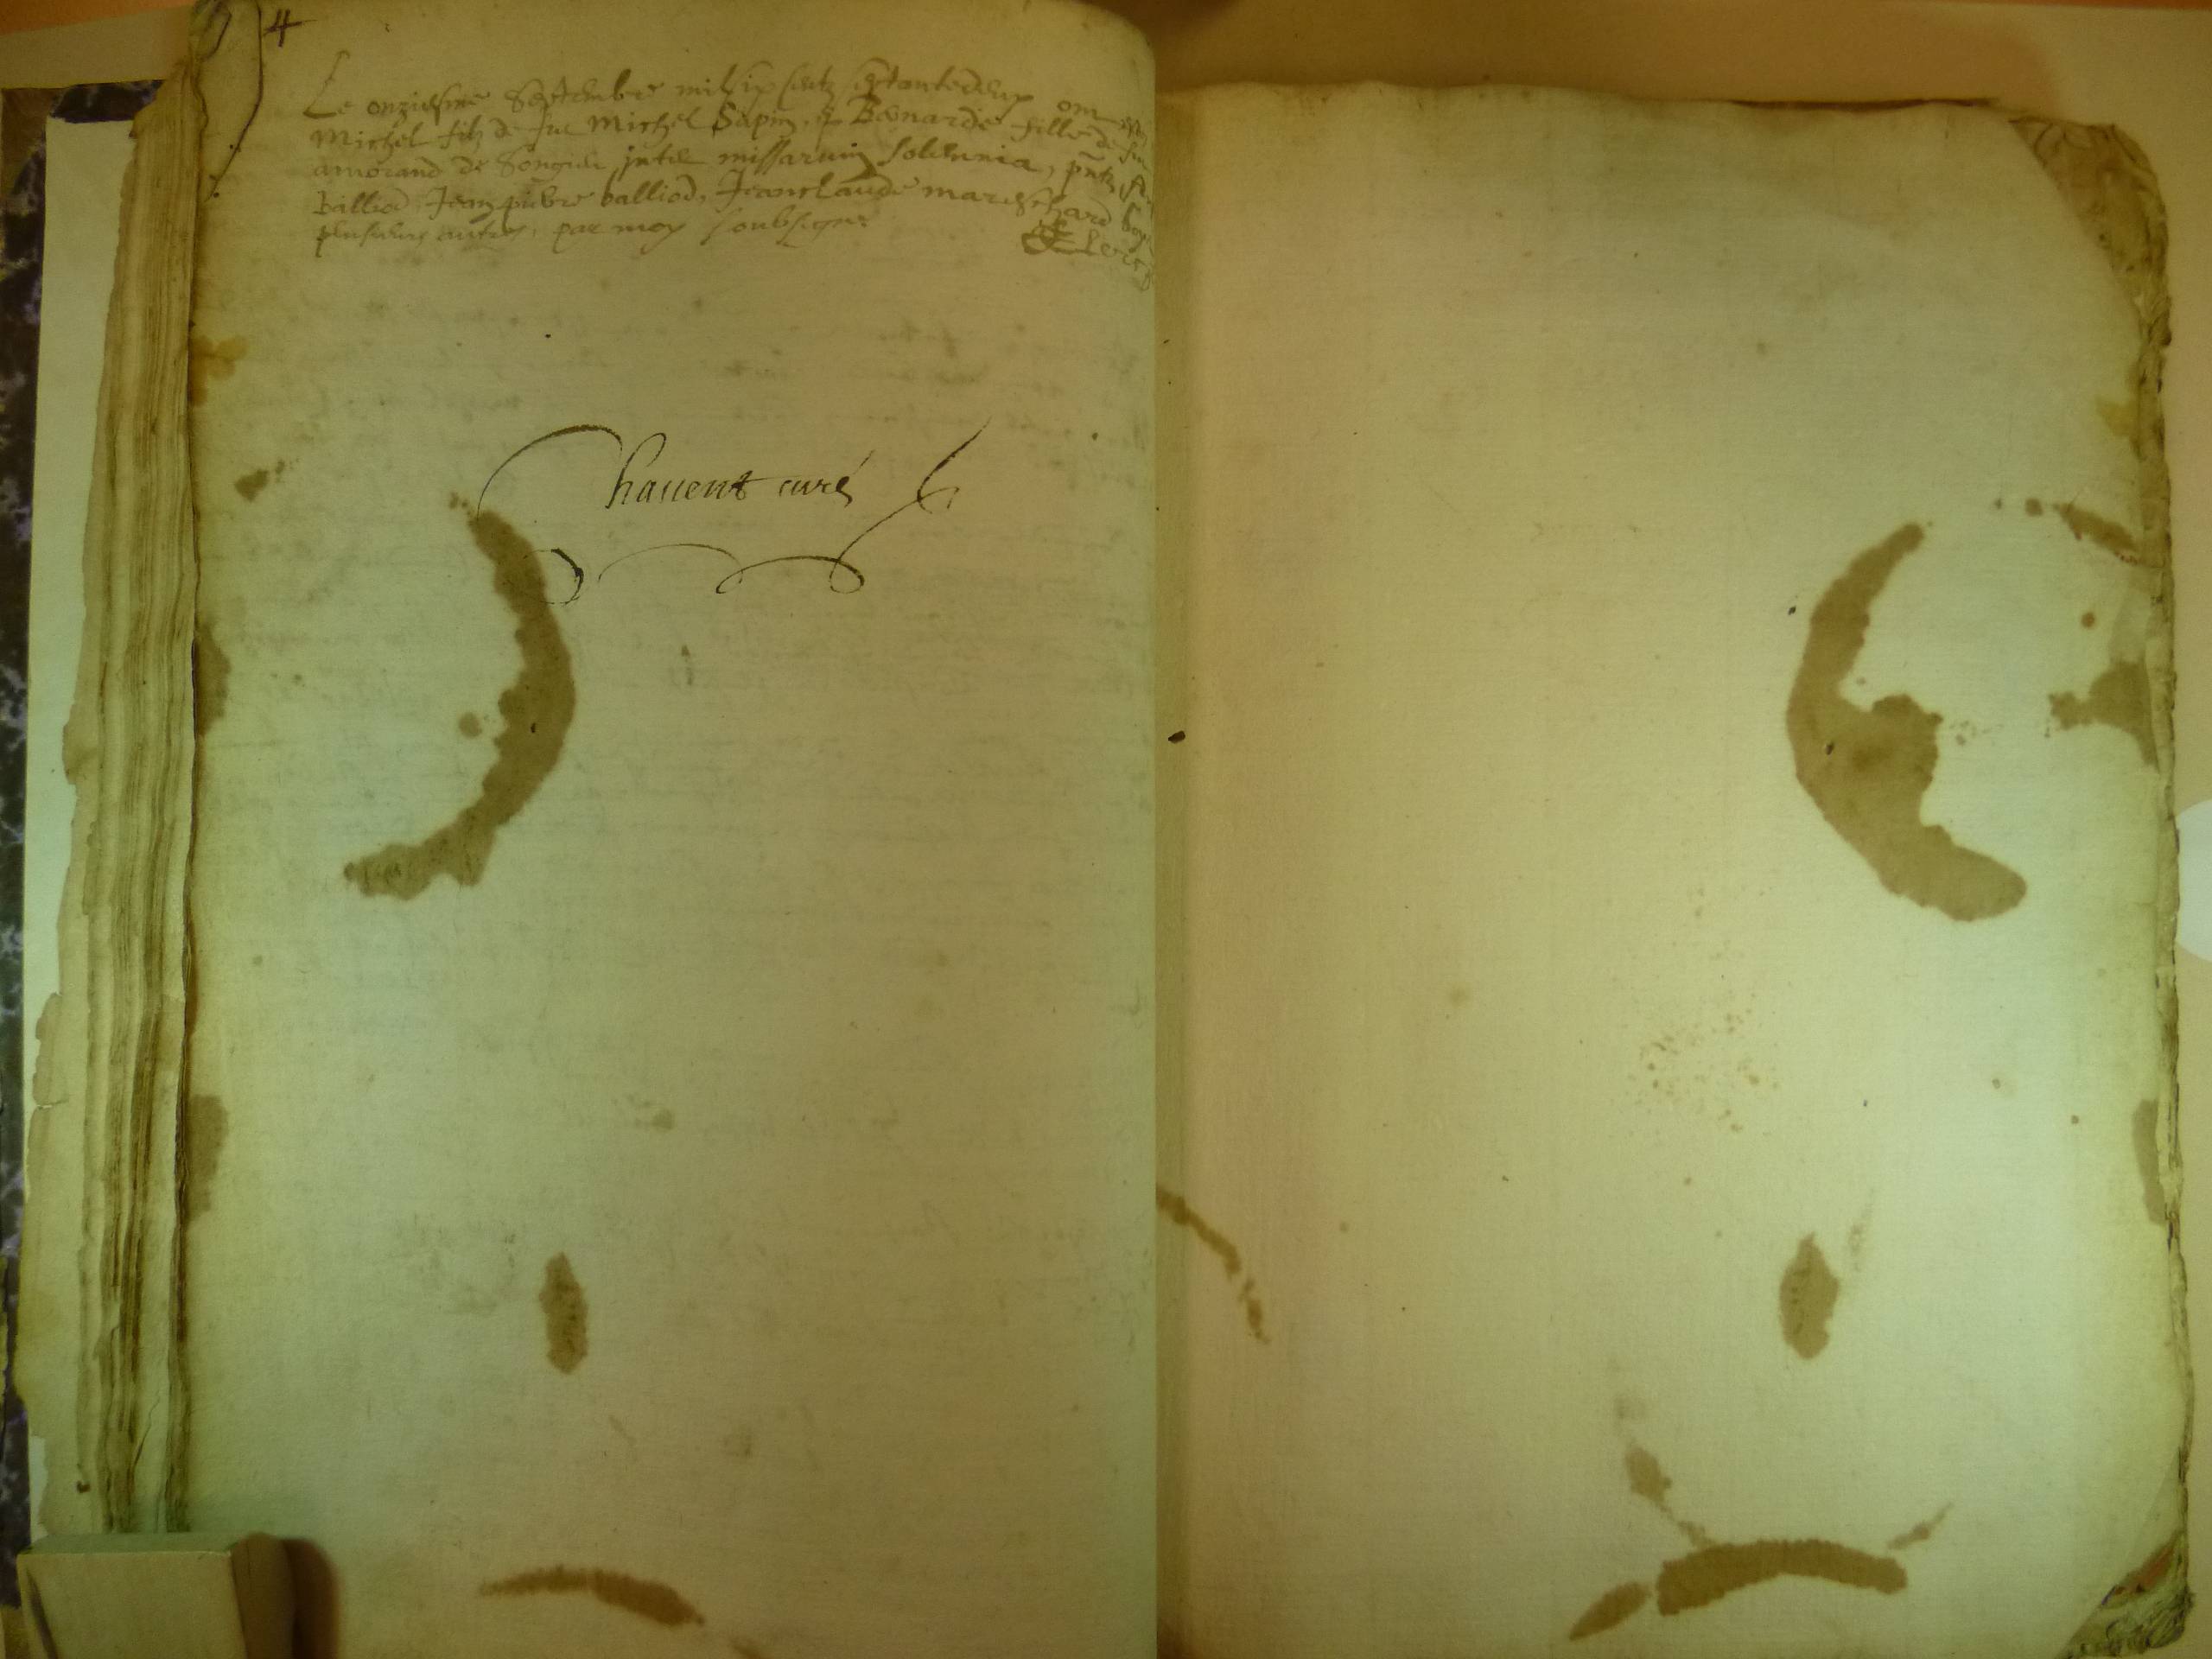 4
Le onziesme Septembre mil six centz septantedeux ont
Michel filz de fut Michel Sapin, & Benarde fille de fut
amorand de Songieu inter missarum solemnia, pntz
Balliod, Jean pierre balliod, Jeanclaude mareschard
plusieurs autres, par moy soubsigne
Chauent curé